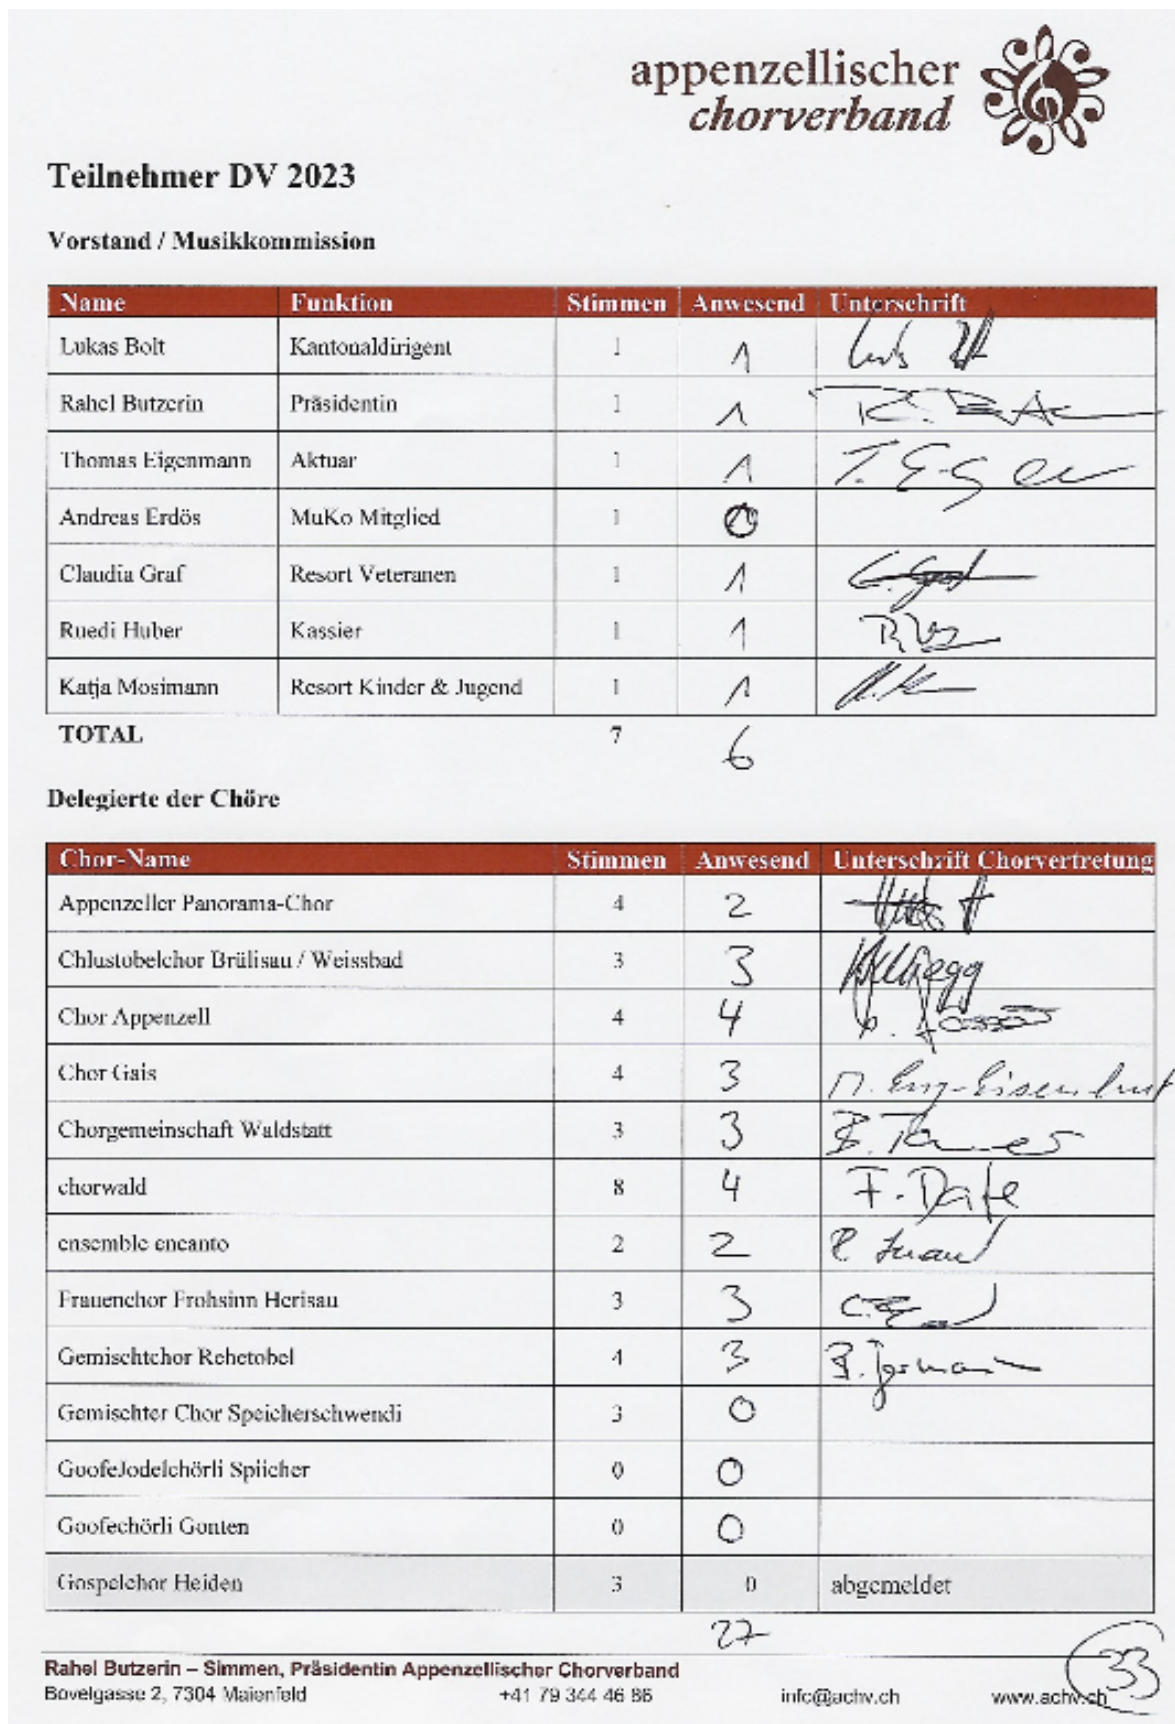 appenzellischer
chorverband
Teilnehmer DV 2023
Vorstand / Musikkommission
Name Funktion Stimmen Anwesend Unterschrift
Lukas Bolt Kantonaldirigent 1 1
Rahel Butzerin Präsidentin 1 1
Thomas Eigenmann Aktuar 1 1
Andreas Erdös MuKo Mitglied 1 0
Claudia Graf Resort Veteranen 1 1
Ruedi Huber Kassier 1 1
Katja Mosimann Resort Kinder & Jugend 1 1
TOTAL 7 6
Delegierte der Chöre
Chor-Name Stimmen Anwesend Unterschrift Chorvertretung
Appenzeller Panorama-Chor 4 2
Chlustobelchor Brülisau / Weissbad 3 3
Chor Appenzell 4 4
Chor Gais 4 3
Chorgemeinschaft Waldstatt 3 3
chorwald 8 4 F. Date
ensemble encanto 2 2
Frauenchor Frohsinn Herisau 3 3
Gemischtchor Rehetobel 4 3
Gemischter Chor Speicherschwendi 3 0
GoofeJodelchörli Spiicher 0 0
Goofechörli Gonten 0 0
Gospelchor Heiden 3 0 abgemeldet
27
33
Rahel Butzerin – Simmen, Präsidentin Appenzellischer Chorverband
Bovelgasse 2, 7304 Maienfeld +41 79 344 46 86 info@achv.ch www.achv.ch